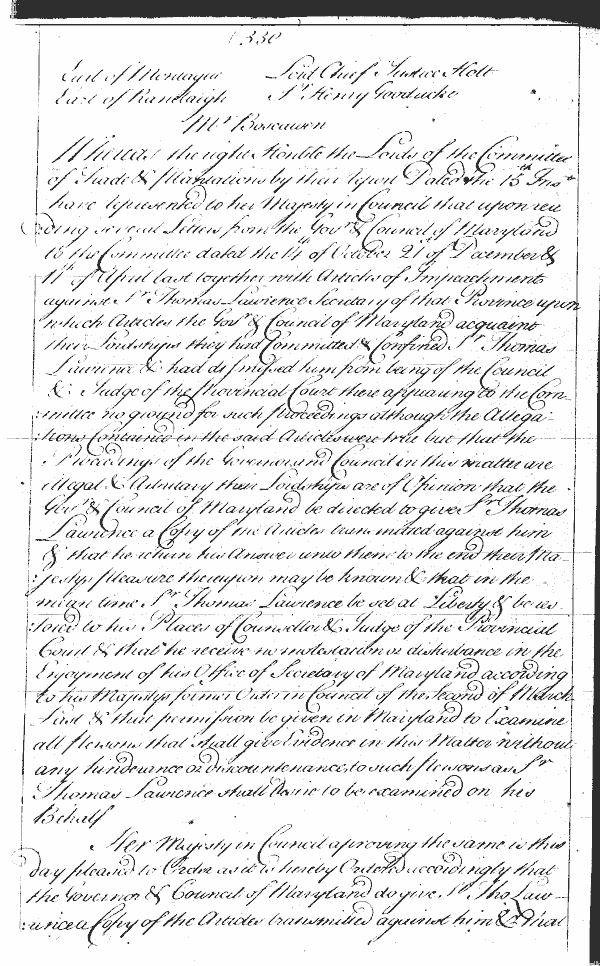 ( 330
Earl of Montague Lord Chief Justice Holt
Earl of Ranelaigh Sr Henry Gooduche
Mr Boscawen
Whereas the right Honble the Lords of the Committee
of Trade & Plantations by their Report Dated the 15th Inst
have represented to her Majesty in Council that upon rea
ding several Letters from the Govr & Council of Maryland
to the Committee dated the 14th of October 21st of December &
11th of April last together with Articles of Impeachment
against Sr Thomas Lawrence Secretary of that Province upon
which Articles the Govr & Council of Maryland acquaint
their Lordships they had Committed & Confined Sr Thomas
Lawrence & had dismissed him from being of the Council
& Judge of the Provincial Court there appearing to the Com-
mittee no ground for such proceedings although the Allega
:tions Contained in the said Articles were true but that the
Proceedings of the Governour and Council in this matter are
illegal & Arbitrary their Lordships are of Opinion that the
Govr & Council of Maryland be directed to give Sr Thomas
Lawrence a Copy of the Articles transmitted against him
& that he return his Answer unto them to the end their Ma-
:jestys pleasure thereupon may be known & that in the
mean time Sr Thomas Lawrence be set at Liberty & be res-
:tored to his Places of Counsellor & Judge of the Provincial
Court & that he receive no molestation or disturbance in the
Enjoyment of his Office of Secretary of Maryland according
to his Majestys former Order in Council of the Second of March
Last & that permission be given in Maryland to Examine
all Persons that shall give Evidence in this Matter without
any hinderance or discountenance to such persons as Sr
Thomas Lawrence shall desire to be examined on his
Behalf
Her Majesty in Council aproving the same is this
day pleased to Order as it is hereby Ordered accordingly that
the Governor & Council of Maryland do give Sr Tho Law-
:rence a Copy of the Articles transmitted against him & that